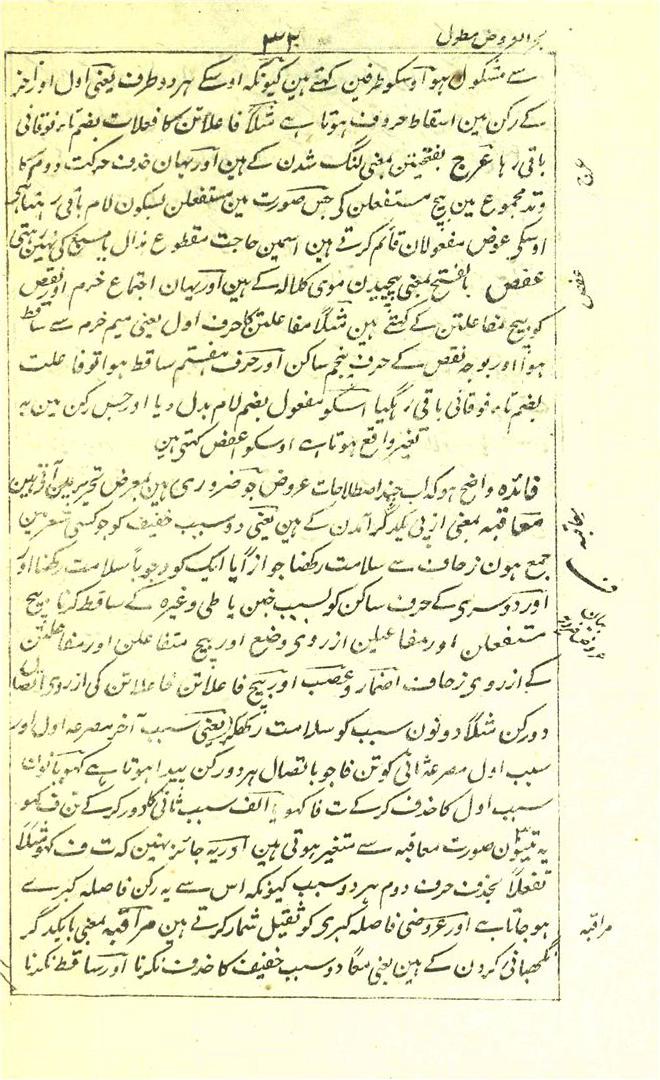 بحر العروض مطول
۳۲
سے مشکول ہو اوسکو طرفین کہتے ہین کیونکہ اوسکے ہر دو طرف یعنی اول اور آخر
کے رکن مین اسقاط حروف ہوتا ہے مثلاً فاعلاتن کا فعلات بضم تاء فوقانی
باقی رہا عرج بفتحتین بمعنی لنگ شدن کے ہین اور یہان حذف حرکت دوم کا
وتد مجموع مین بیچ مستفعلن کی جس صورت مین مستفعلن بسکون لام باقی رہتا ہے
اوسکی عوض مفعولان قائم کرتے ہین اسمین حاجت مقطوع مذال یا مسبغ کی نہین رہتی
عفص بالفتح بمعنی پیچیدن موی کلالہ کے ہین اور یہان اجتماع خرم اور نقص
کو بیچ مفاعلتن کے کہتے ہین مثلاً مفاعلتن کا حرف اول یعنی میم خرم سے ساقط
ہوا اور بوجہ نقص کے حرف پنجم ساکن اور حرف ہفتم ساقط ہوا تو فاعلت
بضم تاء فوقانی باقی رہگیا اسکو مفعول بضم لام بدل دیا اور جس رکن مین یہ
تغیر واقع ہوتا ہے اوسکو اعفص کہتی ہین
فائدہ واضح ہو کہ اب چند اصطلاحات عروض جو ضروری ہین بمعرض تحریر مین آتی ہین
معاقبہ بمعنی از پی یکدیگر آمدن کے ہین یعنی دو سبب خفیف کو جو کسی شعر مین
جمع ہون زحاف سے سلامت رکھنا جوازاً یا ایک کو وجوباً سلامت رکھنا اور
اور دوسری کے حرف ساکن کو بسبب خبن یا طی وغیرہ کے ساقط کرنا بیچ
مستفعلن اور مفاعیلن از روی وضع اور بیچ متفاعلن اور مفاعلتن
کے ازروی زحاف اضمار و عصب اور بیچ فاعلاتن فاعلاتن کی ازروی اتصال
دو رکن مثلاً دونون سبب کو سلامت رکھکر یعنی سبب آخر مصرعہ اول اور
سبب اول مصرعہ ثانی کو تن فا جو باتصال ہر دو رکن پیدا ہوتا ہے کہو یا نون
سبب اول کا حذف کرکے ت فا کہو یا الف سبب ثانی کا دور کرکے تن ف کہو
یہ تینون صورت معاقبہ سے متغیر ہوتی ہین اور یہ جائز نہین کہ ت ف کہو مثلاً
تفعلاً بحذف حرف دوم ہر دو سبب کیونکہ اس سے یہ رکن فاصلہ کبرے
ہو جاتا ہے اور عروضی فاصلہ کبری کو ثقیل شمار کرتے ہین مراقبہ بمعنی بایکدگر
نگہبانی کردن کے ہین یعنی معاً دو سبب خفیف کا حذف نکرنا اور ساقط نکرنا
عرج
عفص
معاقبہ
ف
بیان
مراقبہ